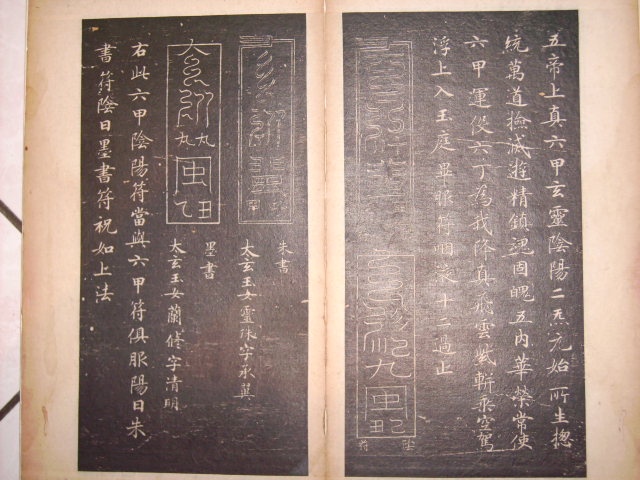 五帝上真六甲玄靈陰陽二炁元始所生揔
統萬道撿滅遊精鎮魂固魄五内華榮常使
六甲運役六丁為我降真飛雲盛軿乗空駕
浮上入玉庭畢服符咽液十二過止
朱書
太玄玉女靈珠字承翼
墨書
太玄玉女蘭脩字清明
右此六甲陰陽符當與六甲符俱服陽日朱
書符陰日墨書符祝如上法